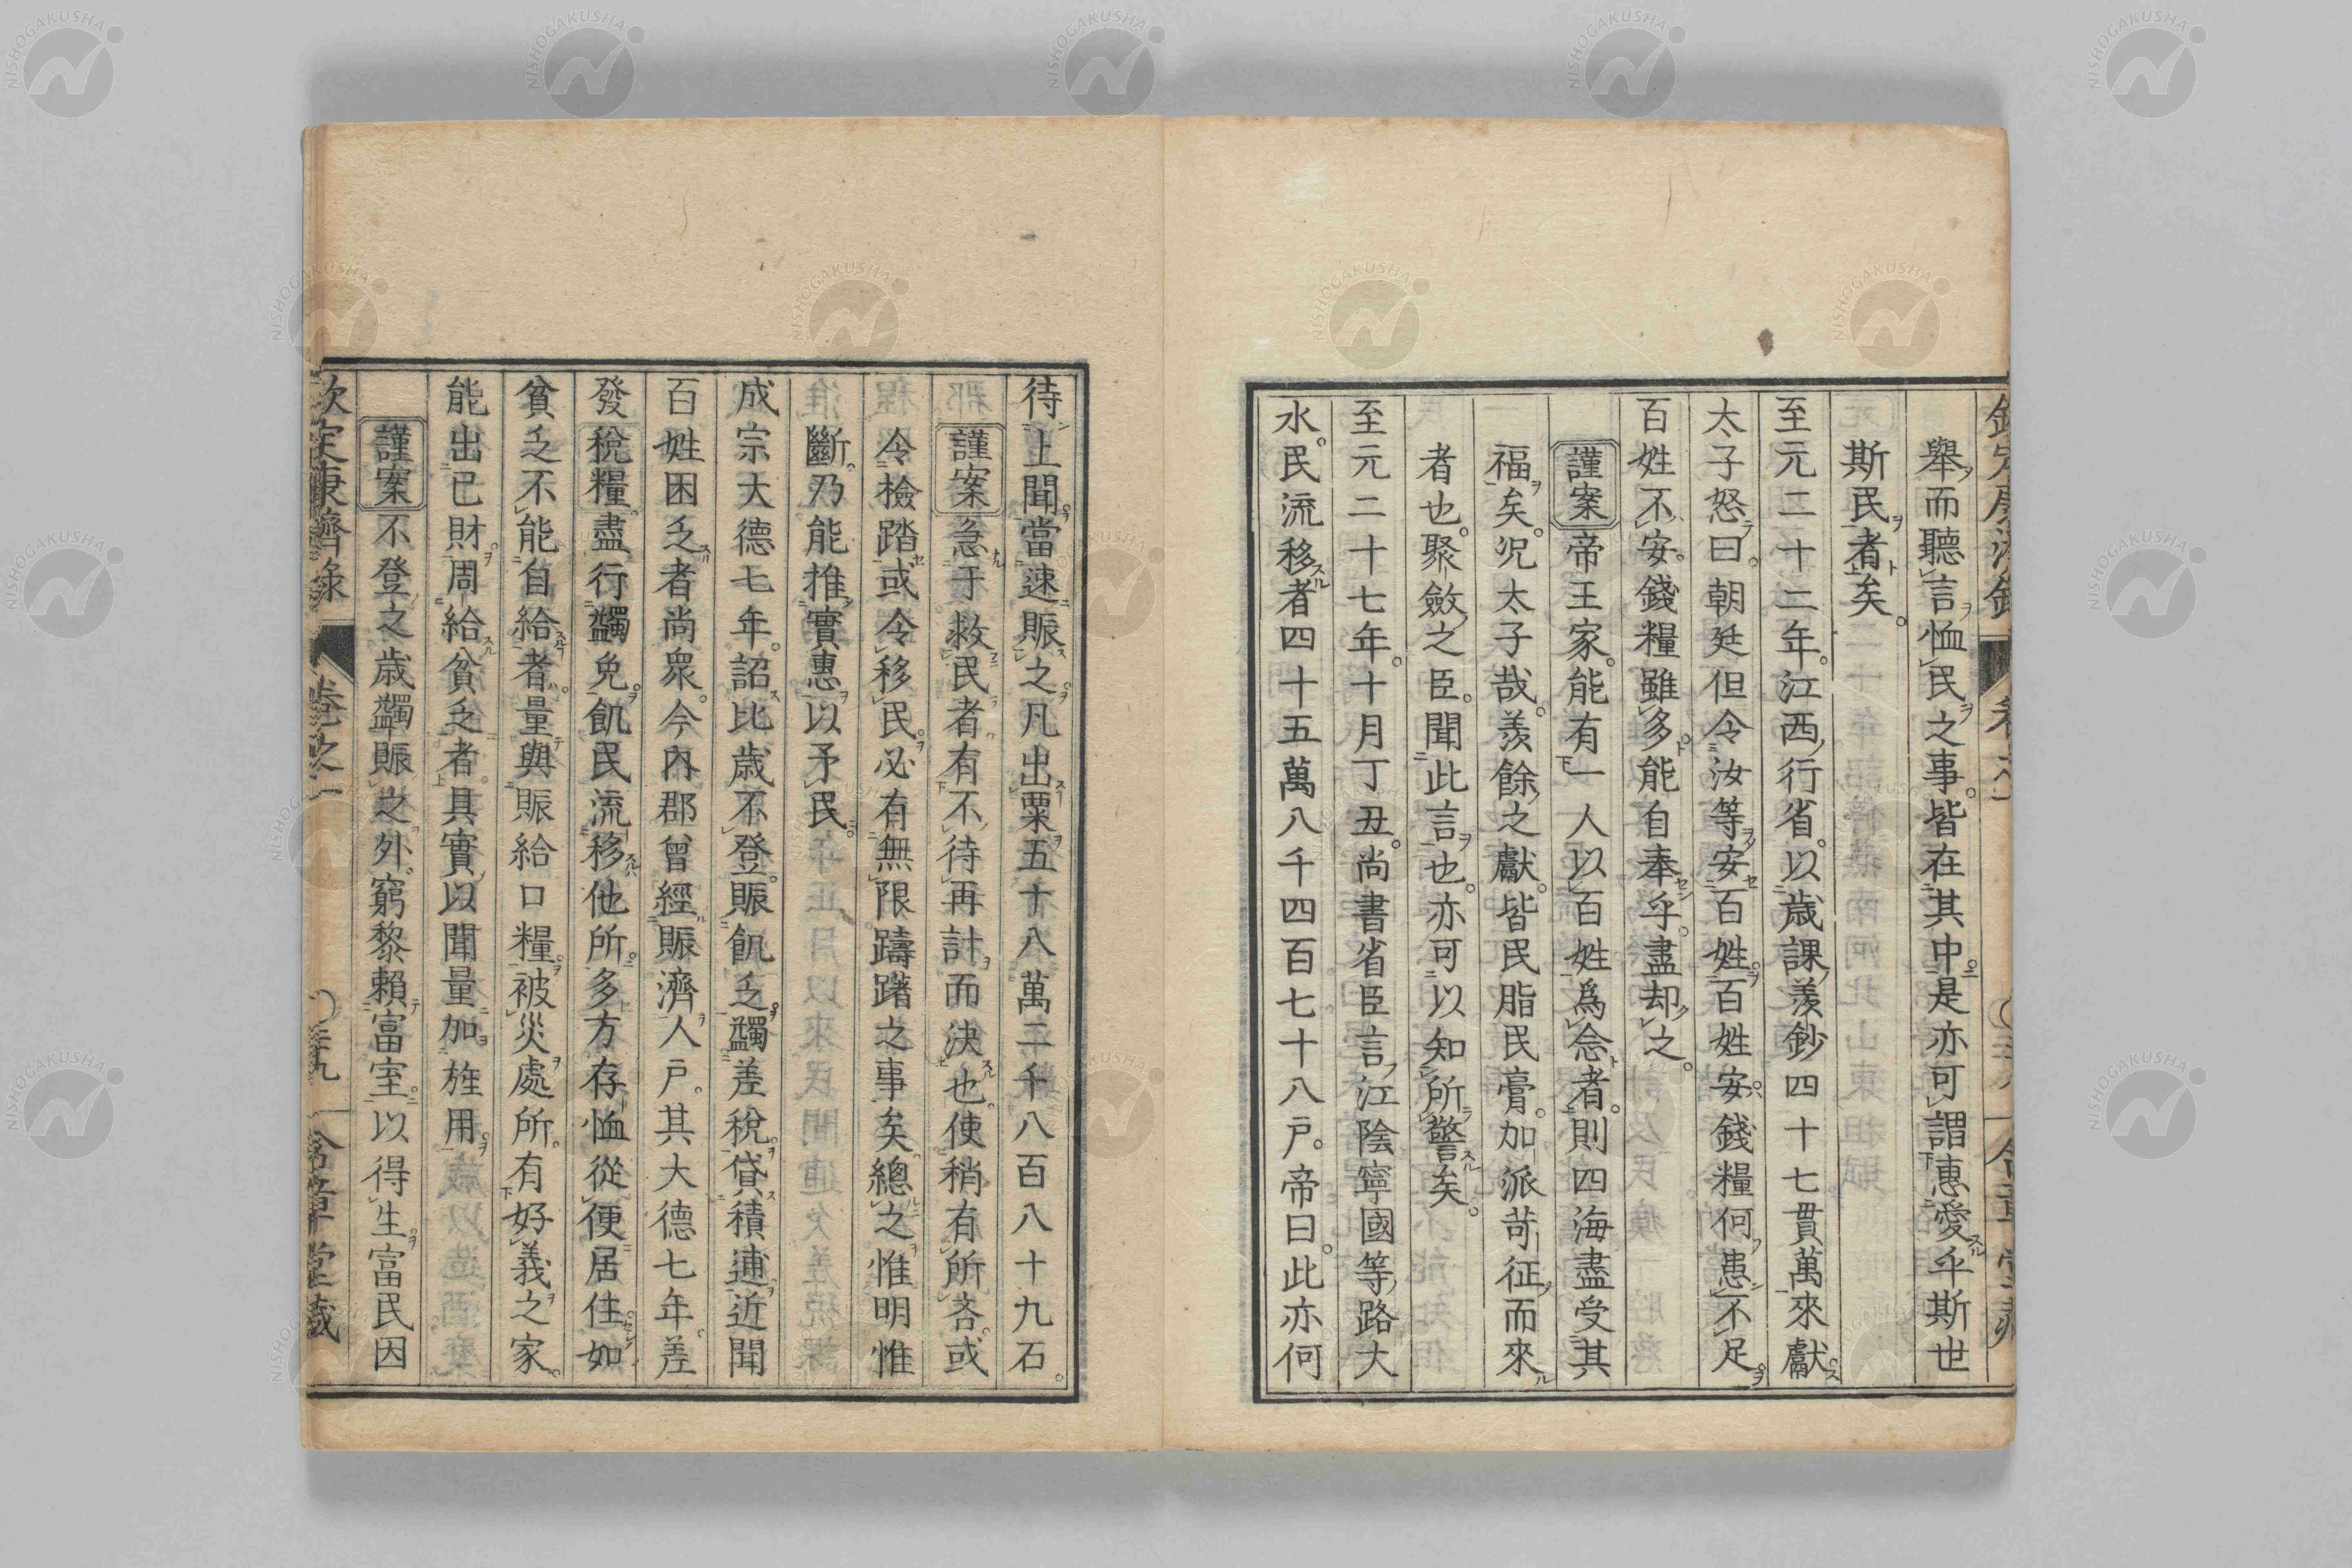 舉而聽言恤民之事。皆在其中。是亦可謂惠愛乎斯世
斯民者矣。
至元二十二年。江西行省。以歲課羨鈔四十七貫萬來獻。
太子怒曰。朝廷但令汝等安百姓。百姓安。錢糧何患不足。
百姓不安。錢糧雖多。能自奉乎。盡却之。
謹案帝王家。能有一人以百姓為念者。則四海盡受其
福矣。況太子哉。羨餘之獻。皆民脂民膏。加派苛征。而來
者也。聚斂之臣。聞此言也。亦可以知所警矣。
至元二十七年。十月丁丑。尚書省臣言。江陰寧國等路大
水。民流移者四十五萬八千四百七十八戸。帝曰。此亦何
待上聞。當速賑之。凡出粟五十八萬二千八百八十九石。
謹案急于救民者。有不待再計而決也。使稍有所吝。或
令檢踏。或令移民。必有無限躊躇之事矣。總之惟明惟
斷。乃能推實惠以予民。
成宗大德七年。詔比歲不登。賑飢乏。蠲差稅。貸積逋。近聞
百姓困乏者尚衆。今內郡曾經賑濟人戸。其大德七年。差
發稅糧。盡行蠲免。飢民流移他所。多方存恤。從便居住。如
貧乏不能自給者。量與賑給口糧。被災處所。有好義之家。
能出已財。周給貧乏者。具實以聞。量加旌用。
謹案不登之歲。蠲賑之外。窮黎賴富室。以得生。富民因
欽定康濟錄 卷之一